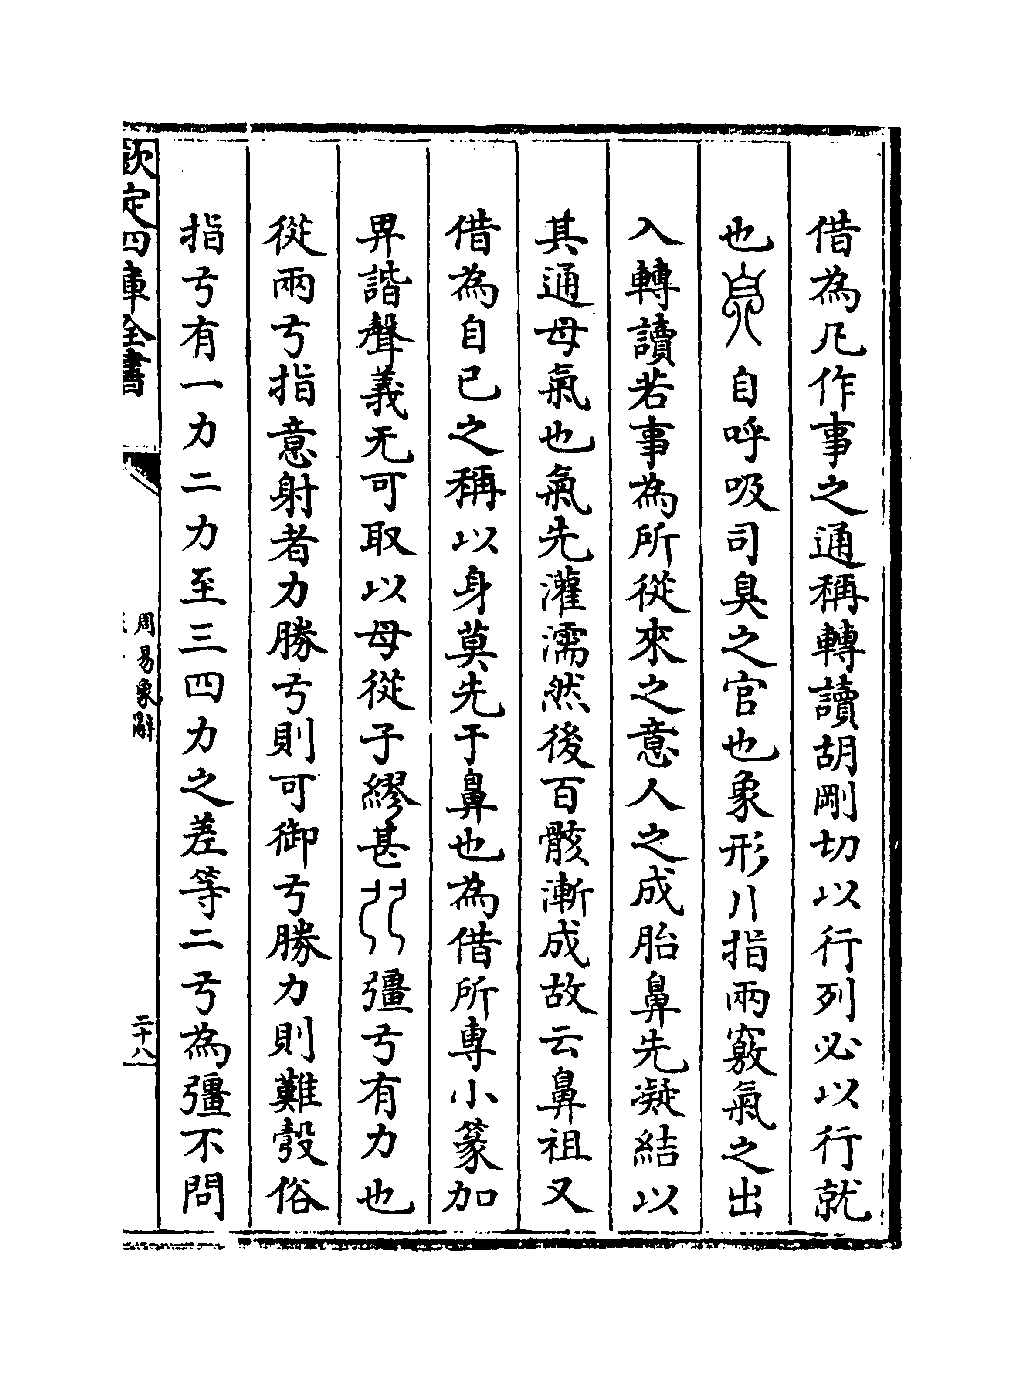 借為凡作事之通稱轉讀胡剛切以行列必以行就
也自呼吸司臭之官也象形八指兩竅氣之出
入轉讀若事為所從來之意人之成胎鼻先凝結以
其通母氣也氣先灌濡然後百骸漸成故云鼻祖又
借為自己之稱以身莫先于鼻也為借所專小篆加
畀諧聲義无可取以母從子繆甚彊弓有力也
從兩弓指意射者力勝弓則可御弓勝力則難彀俗
指弓有一力二力至三四力之差等二弓為彊不問
欽定四庫全書
周易象辭
二十八